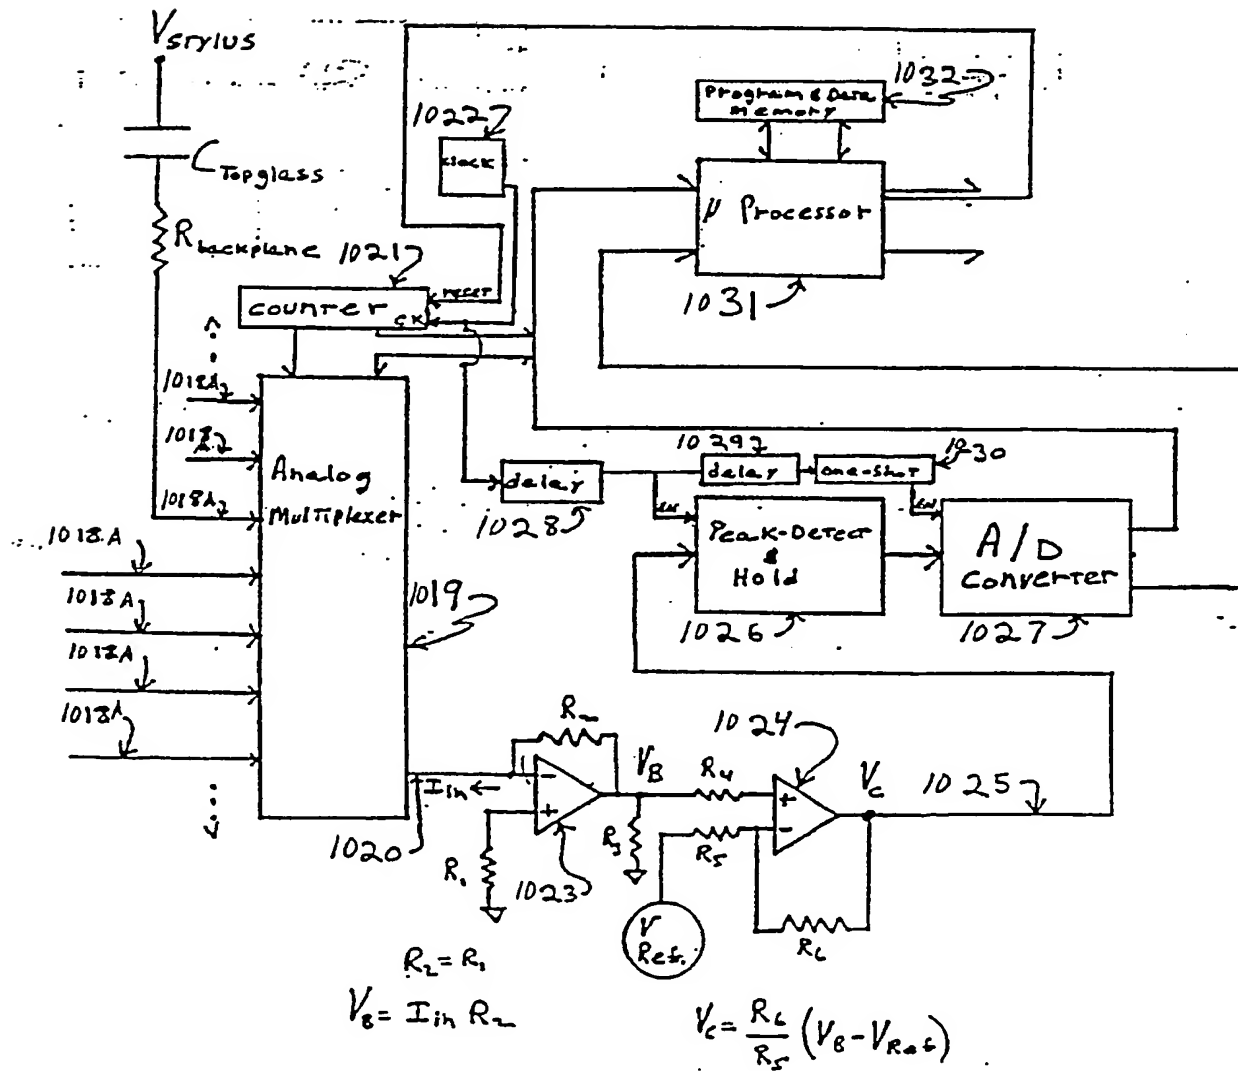 Vstylus
Ctopglass
Rbackplane
1022
clock
1032
Program & Data
Memory
µ Processor
1031
1021
counter
reset
CK
1018A
1018A
1018A
1018A
1018A
1018A
1018A
Analog
Multiplexer
1019
delay
1028
1029
delay
1030
one-shot
en
Peak-Detect
&
Hold
1026
en
A/D
Converter
1027
Iin
1020
R2
-
+
R1
1023
VB
R3
R4
R5
1024
+
-
VC
1025
R6
V
Ref.
R2 = R1
VB = Iin R2
VC = R6/R5 (VB - VRef)